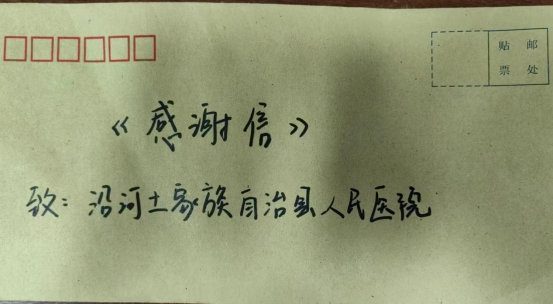 贴邮
票处
《感谢信》
致：沿河土家族自治县人民医院